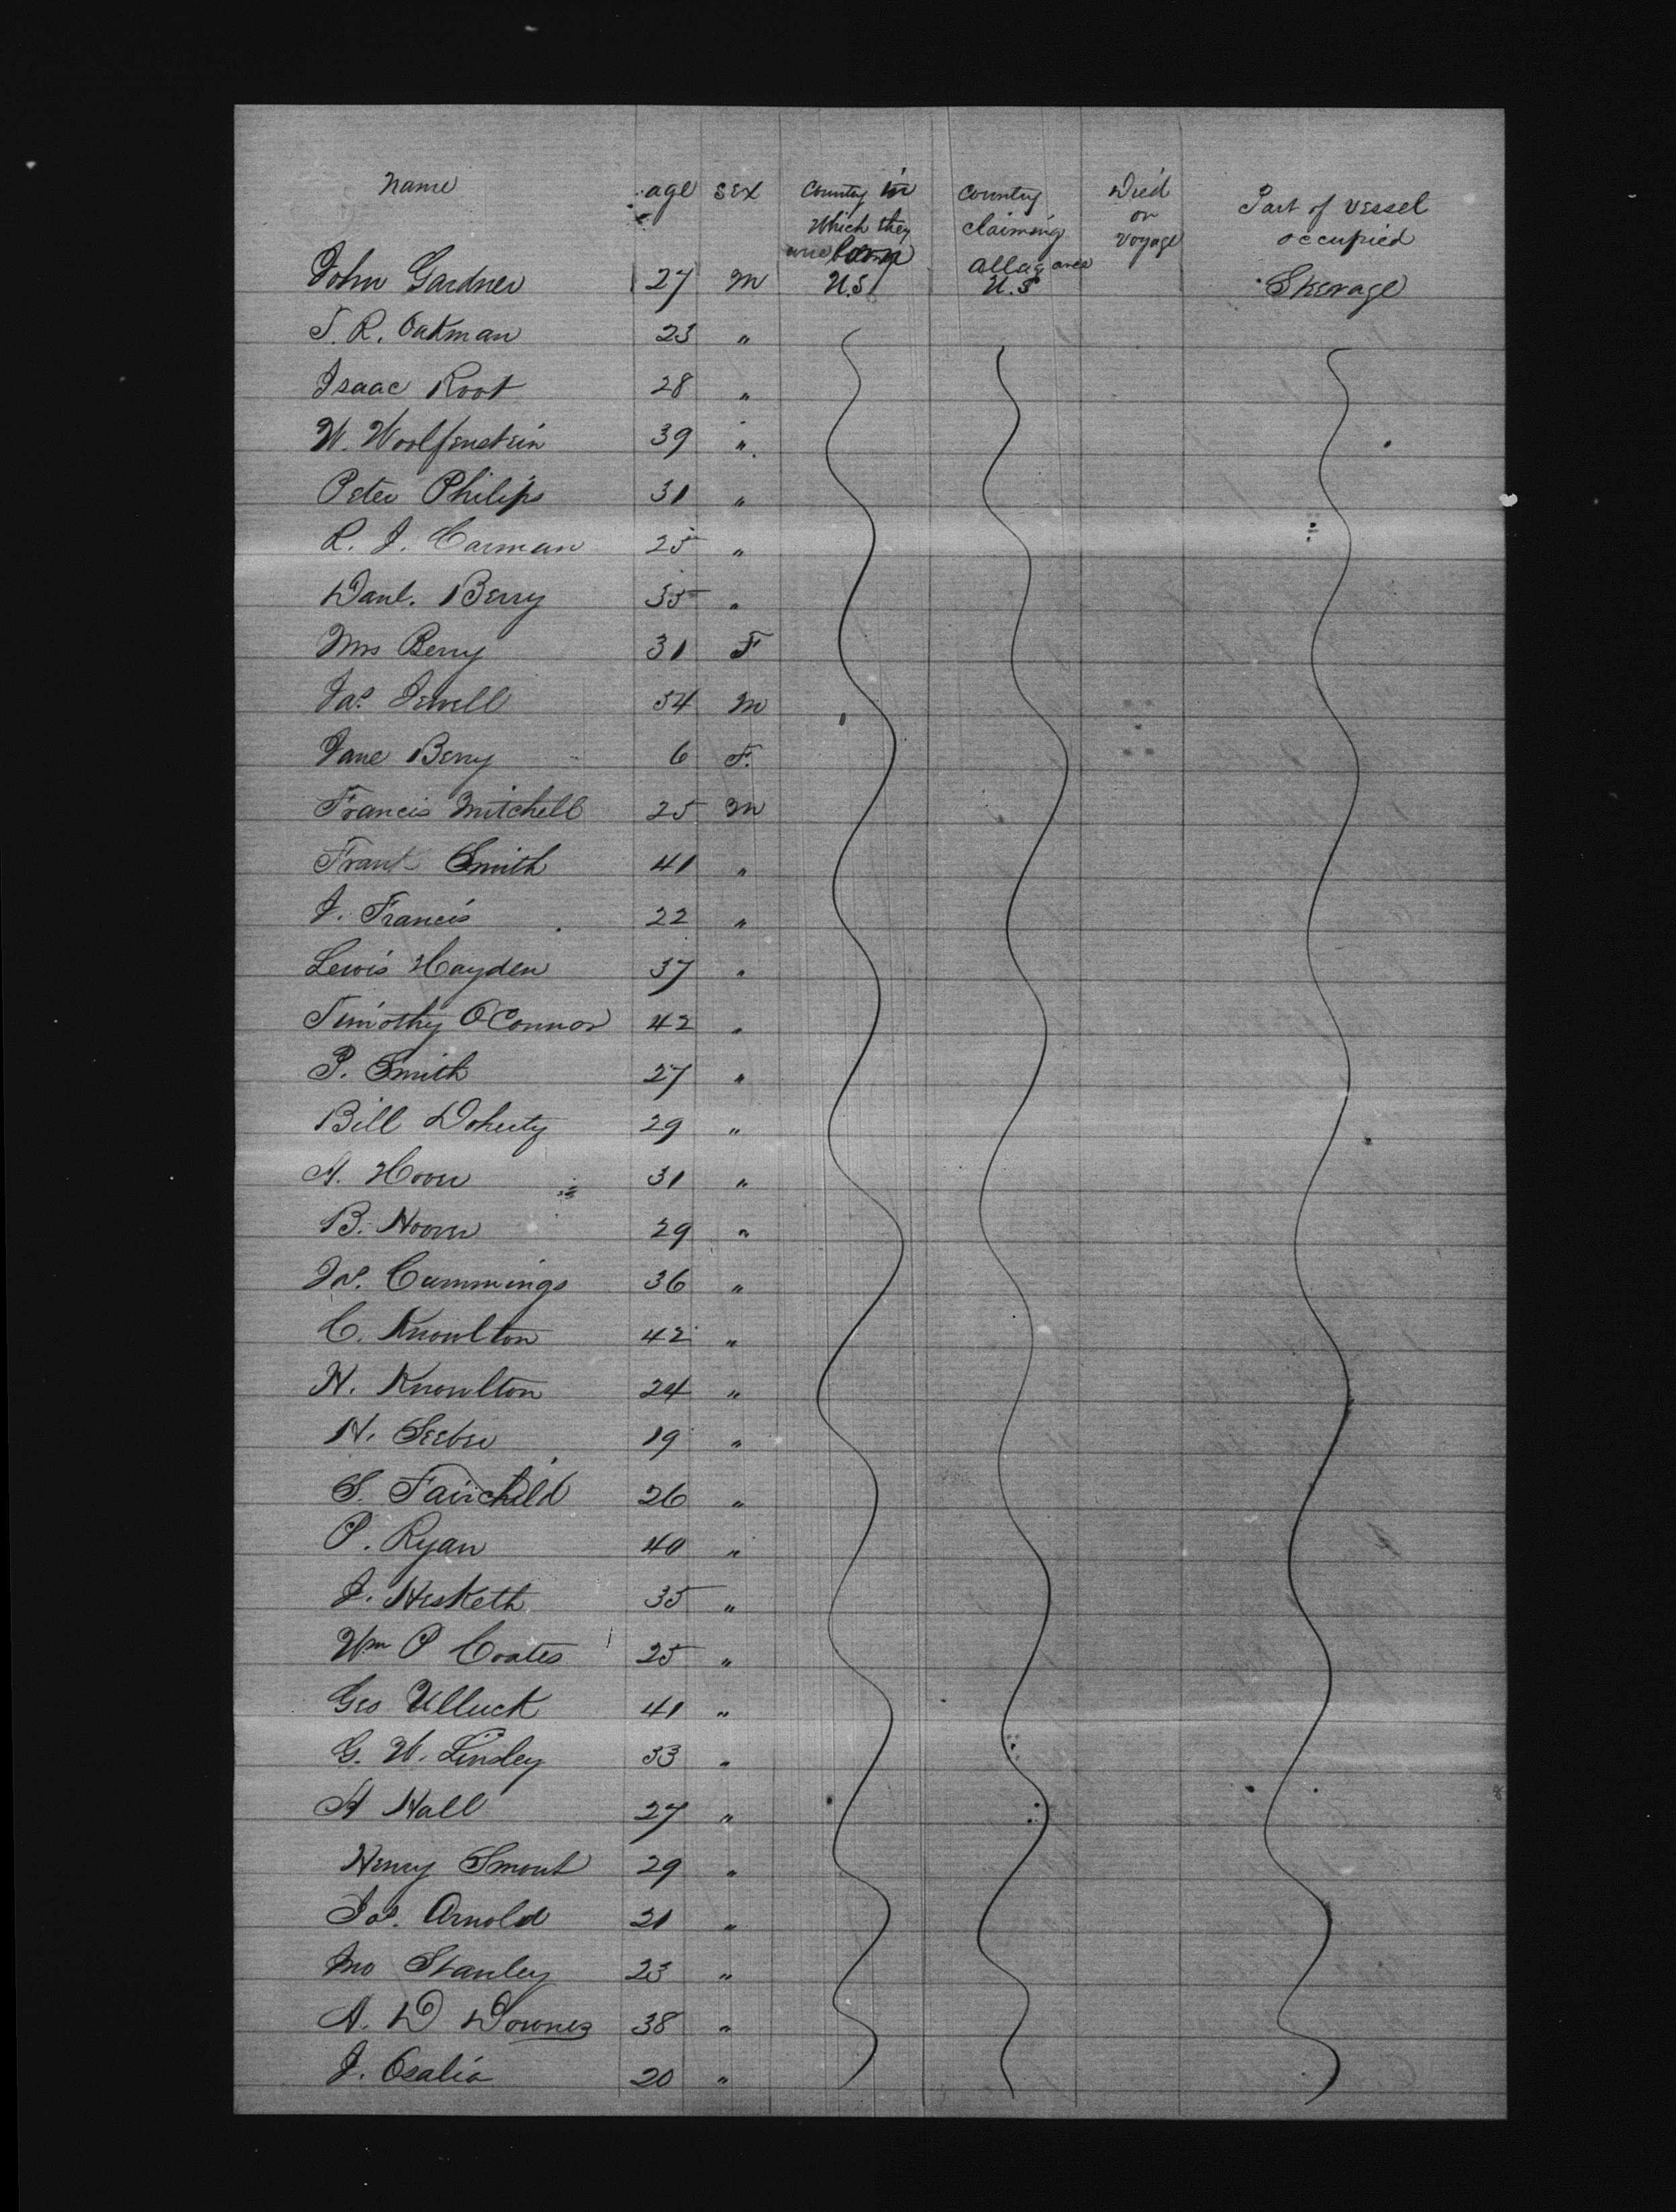 Name age sex Country in Which they are born Country claiming allegiance Died on Voyage Part of Vessel occupied
John Gardner 27 M U.S U.S Steerage
T. R. Oakman 23 "
Isaac Root 28 "
W. Woolfenstein 39 "
Peter Philips 31 "
R. J. Carman 25 "
Danl. Berry 35 "
Mrs Berry 31 F
Jas. Jewell 54 M
Jane Berry 6 F.
Francis Mitchell 25 M
Frank Smith 41 "
J. Francis 22 "
Lewis Hayden 37 "
Timothy O'Connor 42 "
P. Smith 27 "
Bill Doherty 29 "
A. Hoover 31 "
B. Hoover 29 "
Jas. Cummings 36 "
C. Knowlton 42 "
H. Knowlton 24 "
H. Seeber 19 "
S. Fairchild 26 "
P. Ryan 40 "
J. Hesketh 35 "
Wm P Coates 25 "
Geo Ulluck 41 "
G. W. Linsley 33 "
A Hall 27 "
Henry Smout 29 "
Jas. Arnold 21 "
Jno Stanley 23 "
A. D Downez 38 "
J. Osalia 20 "